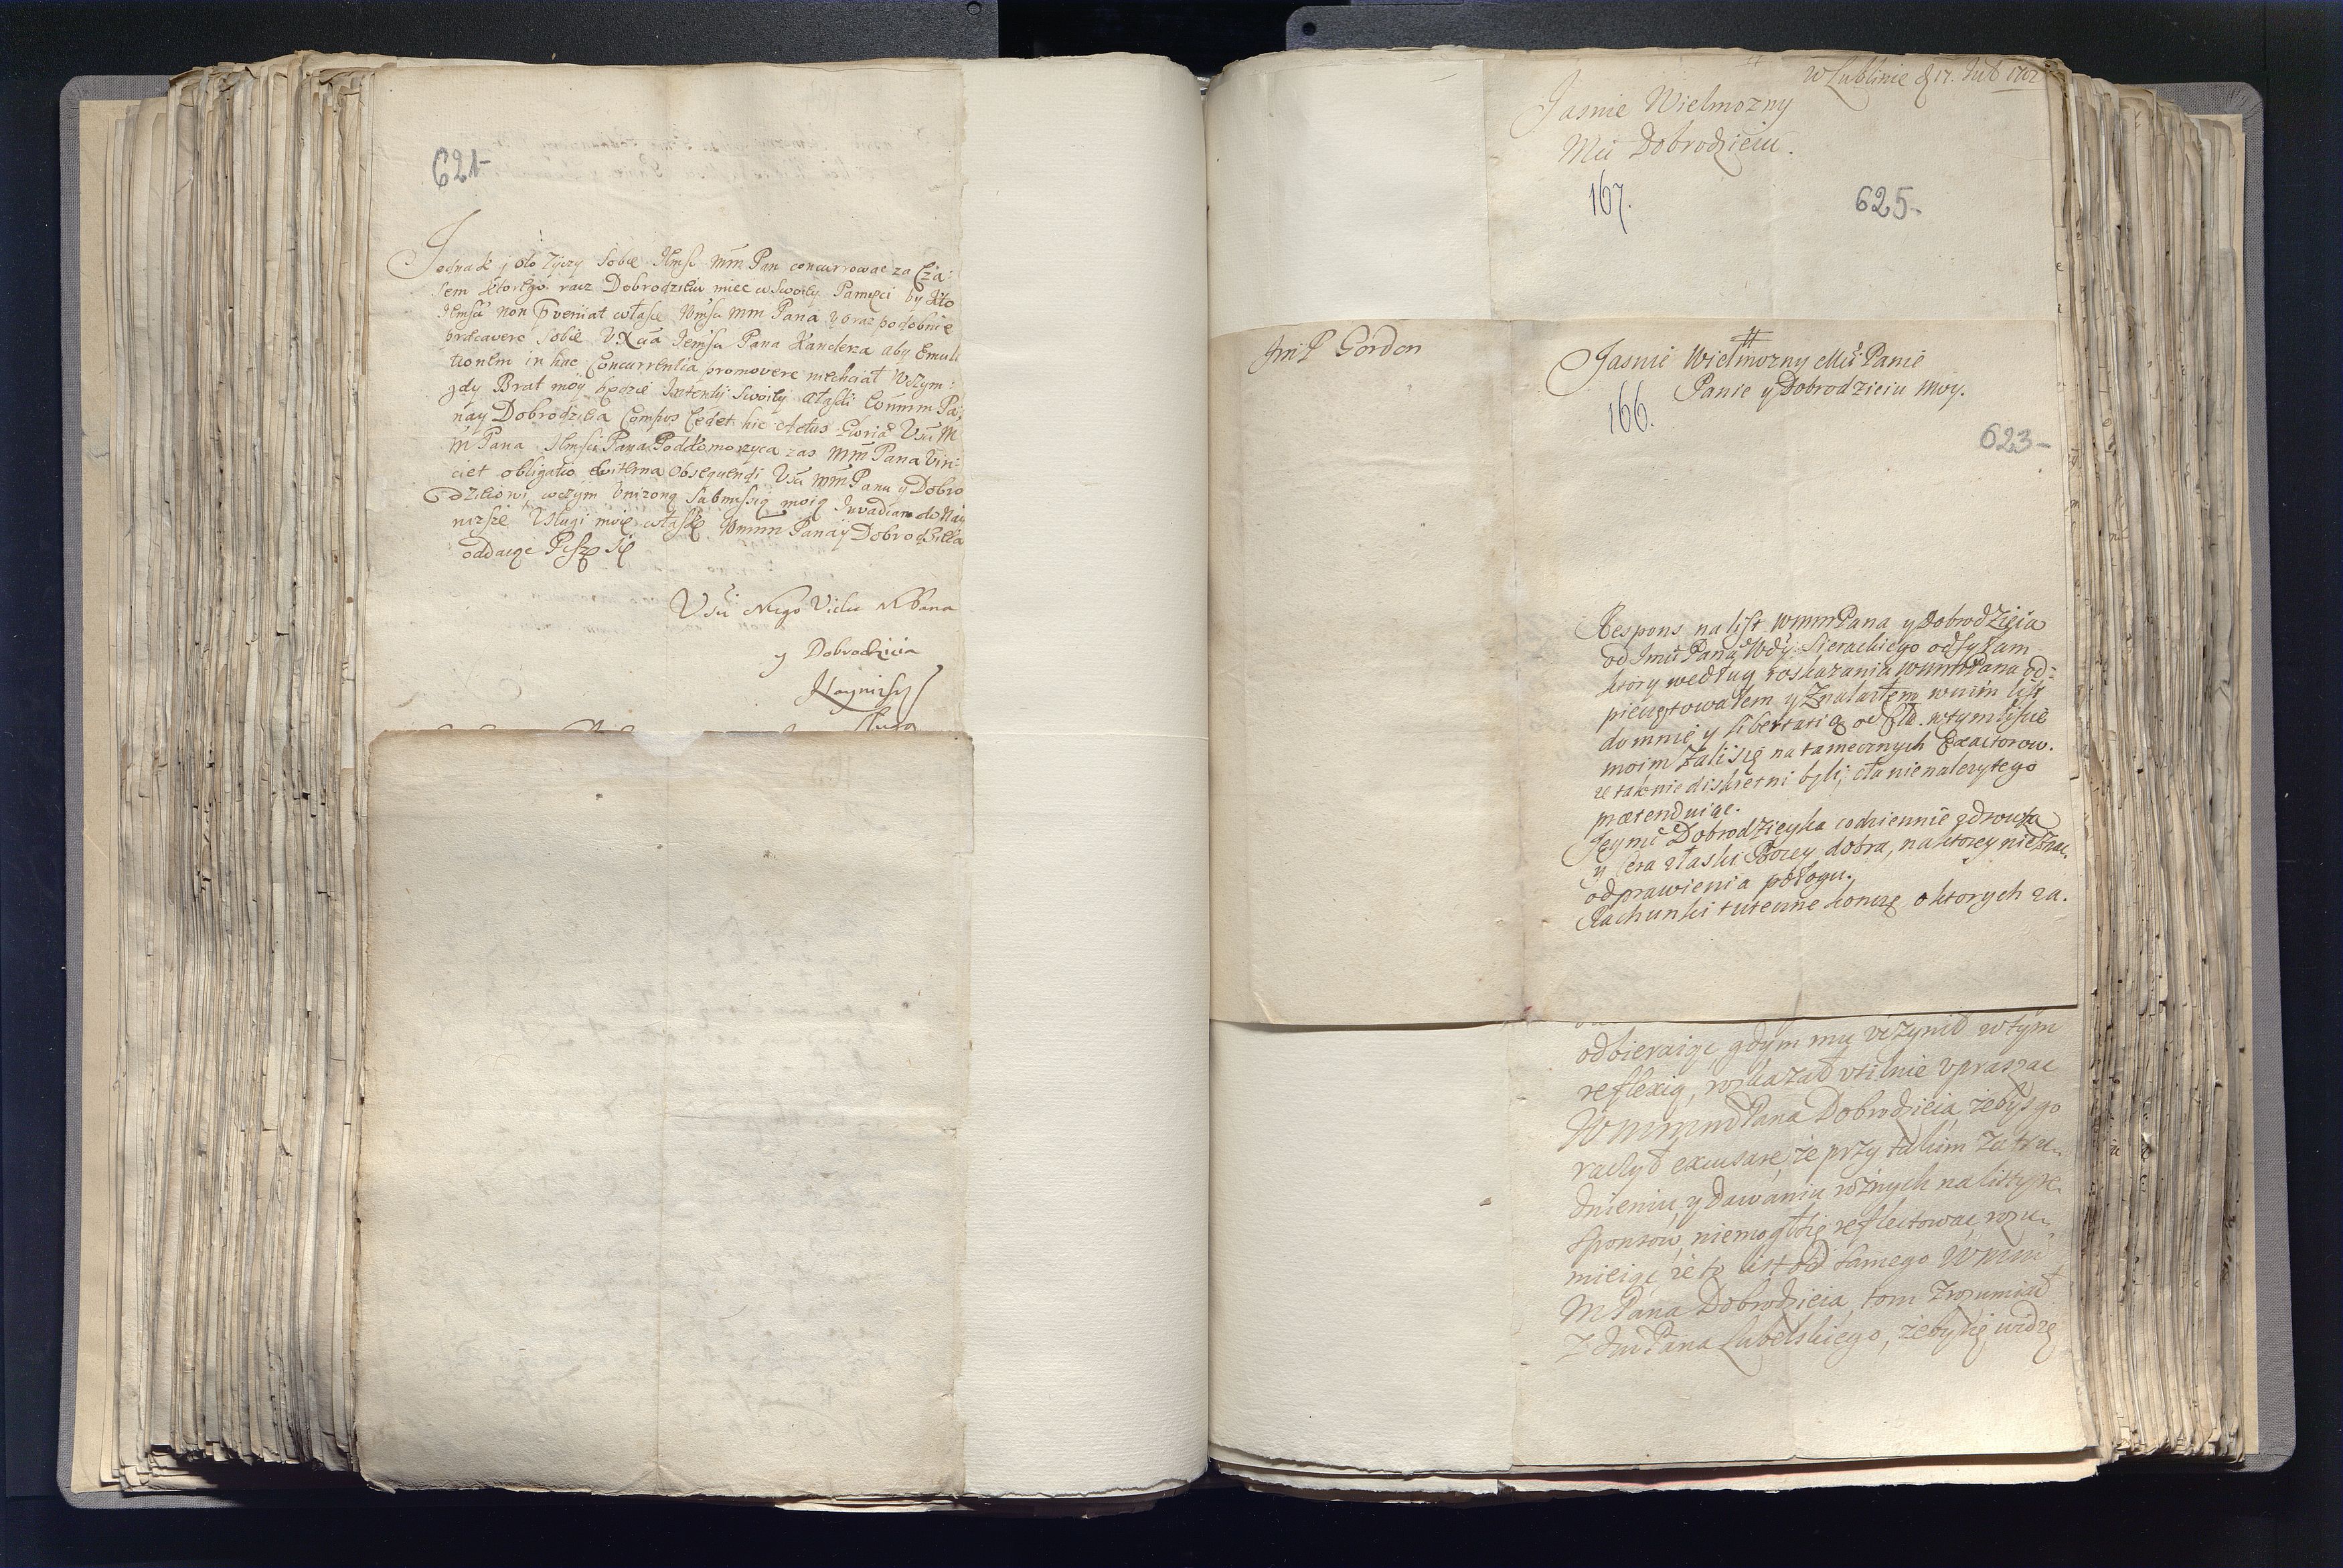 621-
Jednak i oto życzy sobie Jmsć mm Pan concurrowac za Cza:
sem ktorego racz Dobrodzieiu miec w swoiey Pamięci by kto
Jmsci non praeveniat w łasce Wmsci mm Pana y oraz podobnie
praecavere sobie
Jemsci Pana Kanclerza aby Emula
tionem in hac Concurrentia promovere niechciał Wczym:
gdy Brat moy będzie swoiey
nay Dobrodzieia Compos Cedet hic Actus Gloriae Vsci M
M Pana Jmsci Pana Podkomorzyca zas MM Pana Vin:
ciet obligatio obsequendi Vsci mm Panu y Dobro
dzieiowi wczym Vnizoną Submissią moią
nizsze Usługi moie w łaskę Wmm Pana y Dobrodzieia
oddaiąc Piszę się
Vsci Mego Wielce M Pana
y Dobrodzieia
Naynizszy
Sługa
W Lublinie d 17. 1702
Jasnie Wielmozny
Mci Dobrodzieiu.
167.
625-
Jmć P Gordon
Jasnie Wielmozny Mći Panie
Panie y Dobrodzieiu moy.
166.
623-
Respons na list WmmPana y Dobrodzieia
od Jmći Pana Wdy: Sieradzkiego odsyłam
ktory według roskazania WmmPana od:
pieczętowałem y Znalazłem w nim list
do mnie y libertatią od Cła. w tym liscie
moim żali się na tamecznych Exactorow.
ze tak nie diskretni byli, cła nienalezytego
praetenduiąc.
Jeymć Dobrodzieyka codziennie zdrowsza
y Cera z łaski Bozey dobra, na ktorey nie znac.
odprawienia połogu.
Rachunki tuteczne koncze o ktorych za.
odbieraiąc, gdym mu uczynił w tym
reflexią, roskazał usilnie upraszac
WmmmPana Dobrodzieia, zebys go
raczył excusare, że przy takim zatru-
dnieniu y dawaniu rożnych na listy re-
sponsow, niemogł się reflectowac, rozu-
mieiąc że to list od samego Wmm
MPana Dobrodzieia, tom zrozumiał
z Jmć Pana Lubelskiego, żeby się widzę